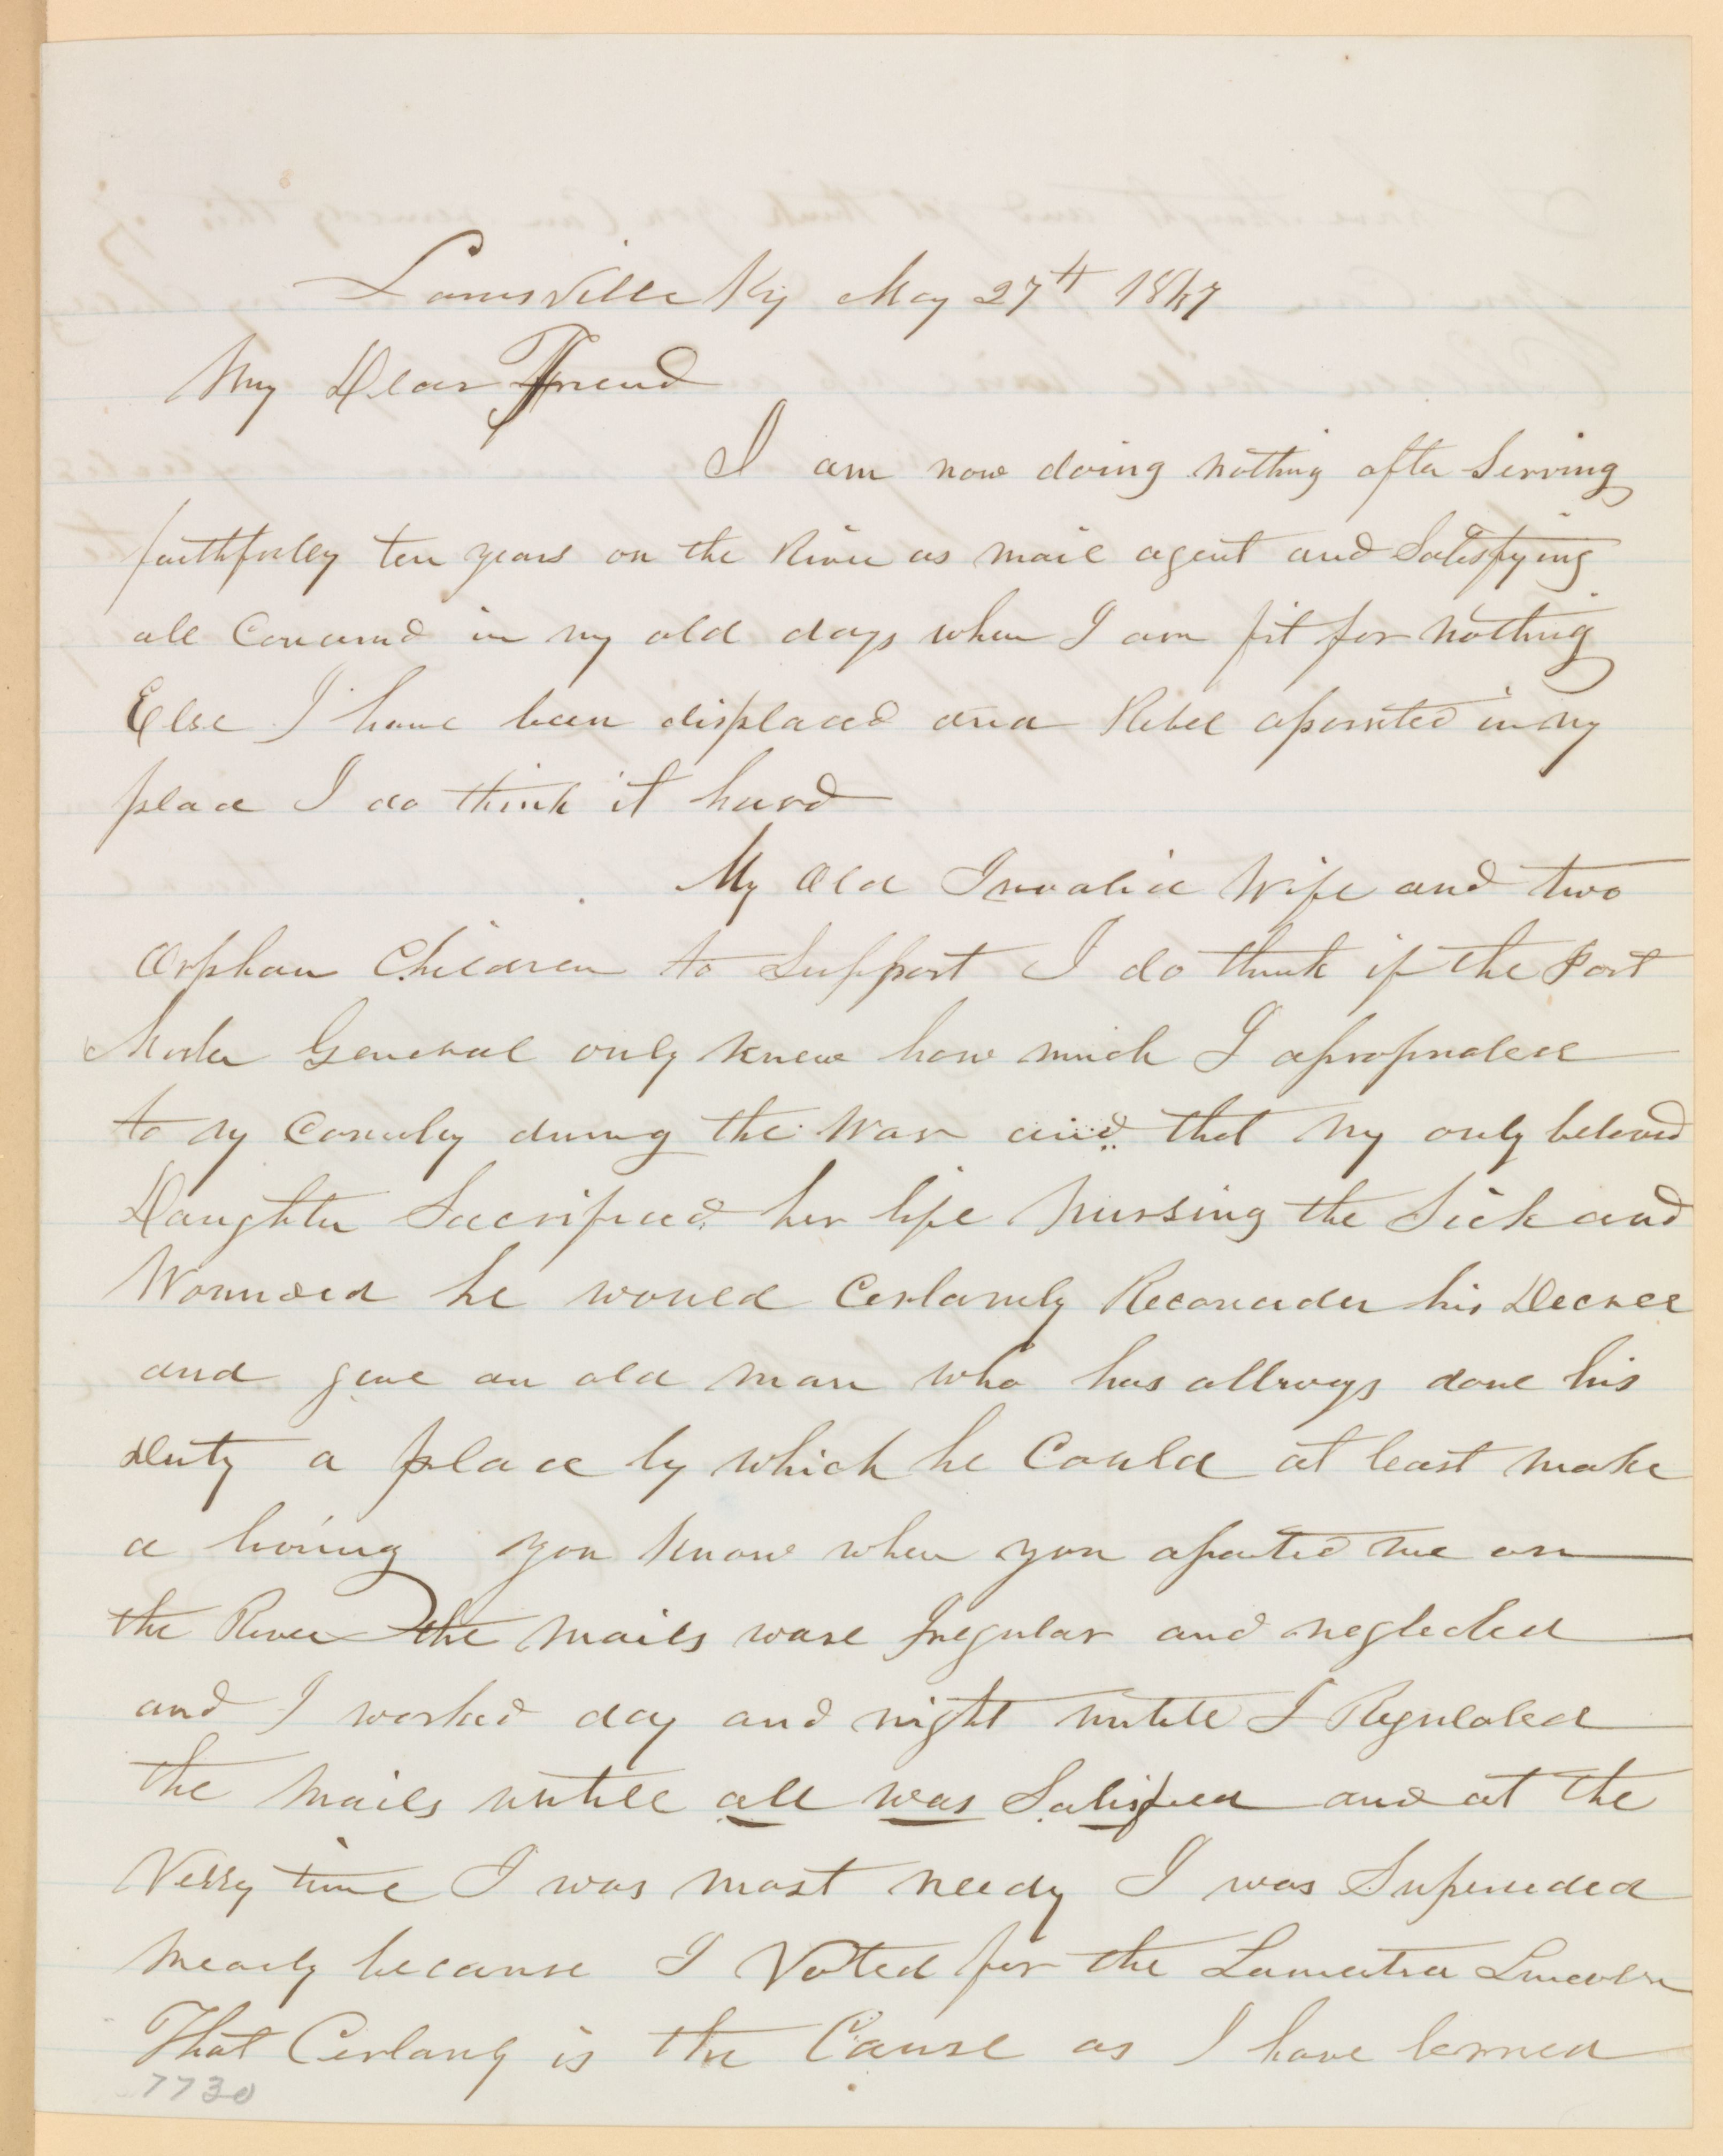 Louisville Ky May 27th 1867
My Dear Friend
I am now doing nothing after Serving
faithfuley ten years on the River as mail agent and Satisfying
all Concarnd in my old days when I am fit for nothing
Else I have been displaced and a Rebel apointed in my
place I do think it hard
My Old Invalid Wife and two
Orphan Children to Support I do think if the Post
Master General only knew how much I apropriated
to my Country during the War and that my only beloved
Daughter Sacrificed her life Nursing the Sick and
Wounded he would Certanly Reconcider his Decree
and give an old man who has allways done his
Duty a place by which he Could at least make
a living you know when you apointed me on
the River the Mails ware Iregular and neglected
and I worked day and night untill I Regulated
the Mails untill all was Satisfied and at the
Verry time I was most needy I was Superceded
Mearly because I Voted for the Lamented Lincoln
That Certanly is the Cause as I have lerned
7730